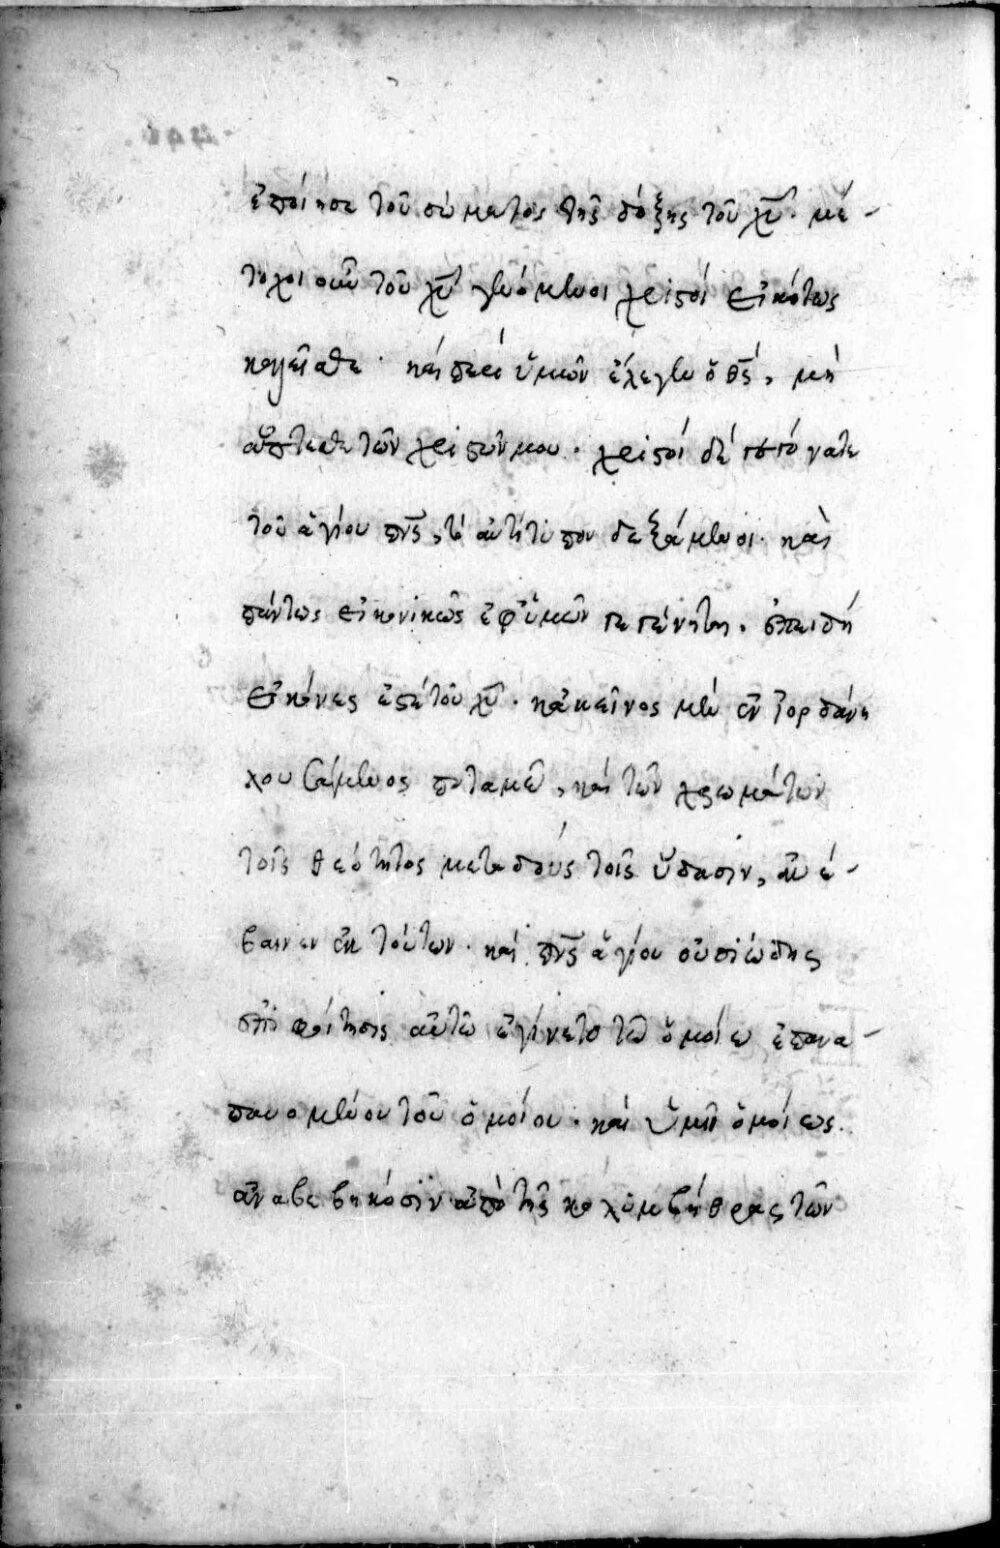 ἐποίησε τοῦ σώματος τῆς δόξης τοῦ χ̅υ̅. μέ-
τοχοι οὖν τοῦ χ̅υ̅ γενόμενοι χριστοὶ εἰκότως
καλεῖσθε. καὶ περὶ ὑμῶν ἔλεγεν ὁ θ̅ς̅, μὴ
ἅπτεσθε τῶν χριστῶν μου. χριστοὶ δὲ γεγόνατε
τοῦ ἁγίου π̅ν̅ς̅, τὸ ἀντίτυπον δεξάμενοι. καὶ
πάντως εἰκονικῶς ἐφ' ὑμῶν γεγένηται. ἐπειδὴ
εἰκόνες ἐστὲ τοῦ χ̅υ̅. κἀκεῖνος μὲν ἐν ἰορδάνη
λουσάμενος ποταμῶ, καὶ τῶν χρωμάτων
τοῖς θεότητος μεταδοὺς τοῖς ὕδασιν, ἀνέ-
βαινεν ἐκ τούτων. καὶ π̅ν̅ς̅ ἁγίου οὐσιώδης
ἐπιφοίτησις αὐτῶ ἐγίνετο τῶ ὁμοίω ἐπανα-
παυομένου τοῦ ὁμοίου. καὶ ὑμῖν ὁμοίως
ἀναβεβηκόσιν ἀπὸ τῆς κολυμβήθρας τῶν